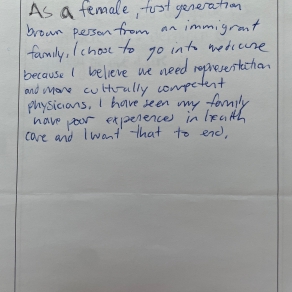 As a female, first generation
brown person from an immigrant
family, I chose to go into medicine
because I believe we need representation
and more culturally competent
physicians. I have seen my family
have poor experiences in health
care and I want that to end.